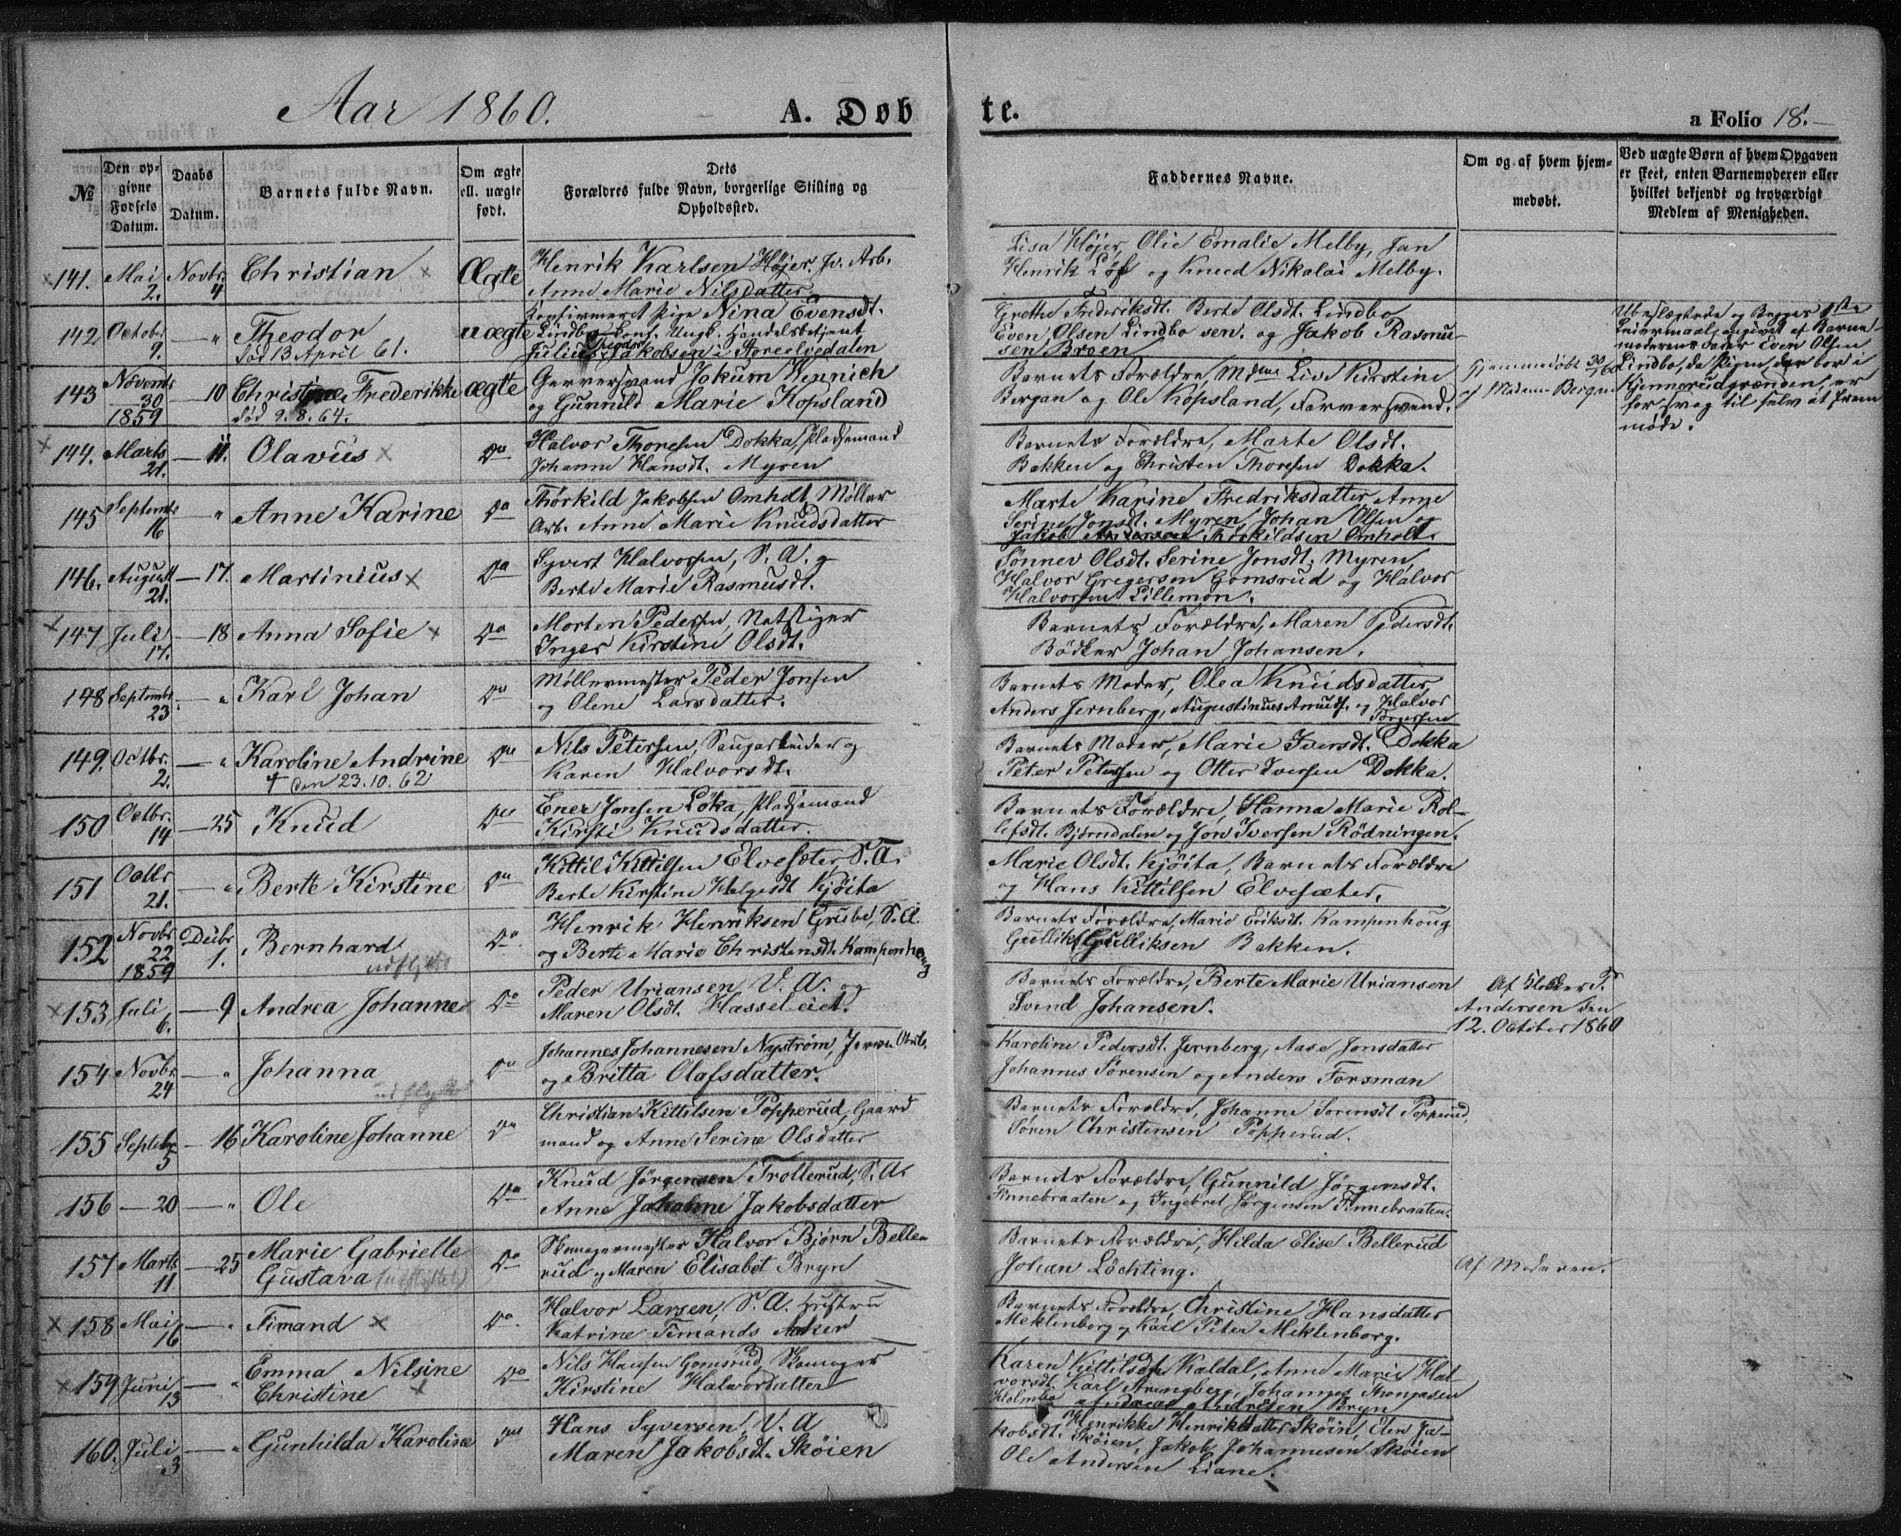 Aar 1860.
A. Døbte.
a Folio 18.
№
Den opgivne Fødsels Datum.
Daabs Datum.
Barnets fulde Navn.
Om ægte ell. uægte født.
Dets Forældres fulde Navn, borgerlige Stilling og Opholdssted.
Faddernes Navne.
Om og af hvem hjemmedøbt.
Ved uægte Børn af hvem Opgaven er skeet, enten Barnemoderen eller hvilket bekjendt og troværdigt Medlem af Menigheden.
141. Mai 2. Novbr. 4 Christian Ægte
Henrik Karlsen Højer, Jv. Arb.
Anne Marie Nilsdatter
Lisa Højer, Olie Emalie Melby, Jan
Henrik Löf og Knud Nikolai Melby.
142 October 9. — " Theodor uægte
Död 13 April 61.
Konfirmeret Pige Nina Evensdt.
Lindbo, Conf. Ungk. Handelsbetjent
Julius Theodor Jakobsen i Foreelvedalen
Grethe Frederiksdt. Berte Olsdt. Lindbo
Even Olsen Lindbo sen. og Jakob Rasmu-
sen Broen
Ubeslægtede og Begges 1ste
Leiermaal, angivet af Barne-
moderens Fader Even Olsen
Lindbo, da Pigen, der bor i
Kjennerudgrænden, er
for svag til selv at frem
møde.
143 Novemb. 30 1859 — 10 Christine Frederikke ægte
död 9.8.64.
Garversvend Jokum Hennich
og Gunnild Marie Kopsland
Barnets Forældre, Mdme Live Kirstine
Bergan og Ole Kopsland, Farversvend.
Hjemmedöbt 30/1 60
af Madam Bergan
144. Marts 21. — 11. Olavus Do
Halvor Thoresen Dokka, Pladsemand
Johanne Hansdt. Myren
Barnets Forældre, Marte Olsdt.
Bakken og Christen Thoresen Dokka.
145 Septembr 16 — " Anne Karine Do
Thorkild Jakobsen Omholt, Møller
Arb. Anne Marie Knudsdatter
Marte Karine Fredriksdatter Anne
Serine Jonsdt. Myren, Johan Olsen og
Jakob Thorkildsen Omholt.
146. August 21. — 17. Martinius Do
Syvert Halvorsen, S. A. og
Berte Marie Rasmusdt.
Sønnev Olsdt. Serine Jonsdt. Myren,
Halvor Gregersen Gomsrud og Halvor
Halvorsen Lillemon.
147 Juli 17. — 18 Anna Sofie Do
Morten Pedersen, Natstiger
Inger Kirstine Olsdt.
Barnets Forældre, Maren Pedersdt.
Bödker Johan Johansen.
148 Septembr. 23 — " Karl Johan Do
Møllermester Peder Jonsen
og Olene Larsdatter.
Barnets Moder, Olea Knudsdatter
Anders Jernberg, Augustinus Amuds. og Halvor
Torersen
149. Octbr. 2. — " Karoline Andrine Do
† den 23.10.62
Nils Petersen, Saugarbeider og
Karen Halvorsdt.
Barnets Moder, Marie Iversdt. Dokka
Peter Petersen og Otter Iversen Dokka.
150 Octbr. 14 — 25 Knud Do
Ener Jonsen Löka, Pladsemand
Kirsti Knudsdatter.
Barnets Forældre, Hanna Marie Rol-
lefsdt. Bjørndalen og Jon Iversen Rödningen.
151 Octbr. 21. — " Berte Kirstine Do
Kittil Kittilsen Elvesæter, S. A.
Berte Kirstine Helgesdt Kjöita
Marie Olsdt. Kjöita, Barnets Forældre
og Hans Kittilsen Elvesæter.
152 Novbr 22 1859 Decbr 1. Bernhard Do
udflyttet
Henrik Henriksen Grube, S. A.
og Berte Marie Christensdt. Kampenhoug
Barnets Forældre, Marie Eriksdt. Kampenhoug
Gullik Gulliksen Bakken.
153 Juli 6. — 9 Andrea Johanne Do
Peder Uriansen V. A. og
Maren Olsdt. Hasseleiet.
Barnets Forældre, Berte Marie Uriansen
Svend Johansen.
Af Klokker T.
Andersen den
12. October 1860
154 Novbr 24 — " Johanna Do
udflyttet
Johannes Johannesen Nyström, Jernv. Arb.
og Britta Olafsdatter.
Karoline Pedersdt. Jernberg, Aase Jonsdatter
Johannes Sörensen og Anders Forsman
155 Septebr 5 — 16 Karoline Johanne Do
Christian Kittilsen Popperud, Gaard
mand og Anne Serine Olsdatter
Barnets Forældre, Johanne Sorensdt Popperud,
Sören Christensen Popperud.
156 — 20 — " Ole Do
Knud Jörgensen Trollerud, S. A.
Anne Johanne Jakobsdatter
Barnets Forældre, Gunnild Jörgensdt.
Finnebraaten og Ingebret Jörgensen Finnebraaten.
157 Marts 11. — 25 Marie Gabrielle Do
Gustava (udflyttet)
Skomagermester Halvor Bjørn Belle-
rud og Maren Elisabet Bryn
Barnets Forældre, Hilda Elise Bellerud
Johan Löchting.
Af Moderen.
158 Mai 16 — " Timand Do.
Halvor Larsen, S. A. Hustru
Katrine Timands Aaker
Barnets Forældre, Christine Hansdatter
Meklenborg og Karl Peter Meklenborg.
159 Juni 13 — " Emma Nilsine Do
Christine
Nils Hansen Gomsrud, Skomager
Kirstine Halvordatter
Karen Kittilsdt. Kaldal, Anne Marie Hal-
vorsdt. Karl Strengberg, Johannes Thomassen
Holmbo Andreas Andresen Bryn
160. Juli 3 — " Gunhilda Karoline Do
Hans Syversen, V. A
Maren Jakobsdt. Sköien
Henrikke Henriksdatter Sköin, Elen Ja-
kobsdt. Sköien, Jakob Johannesen Sköien
Ole Andersen Liane.